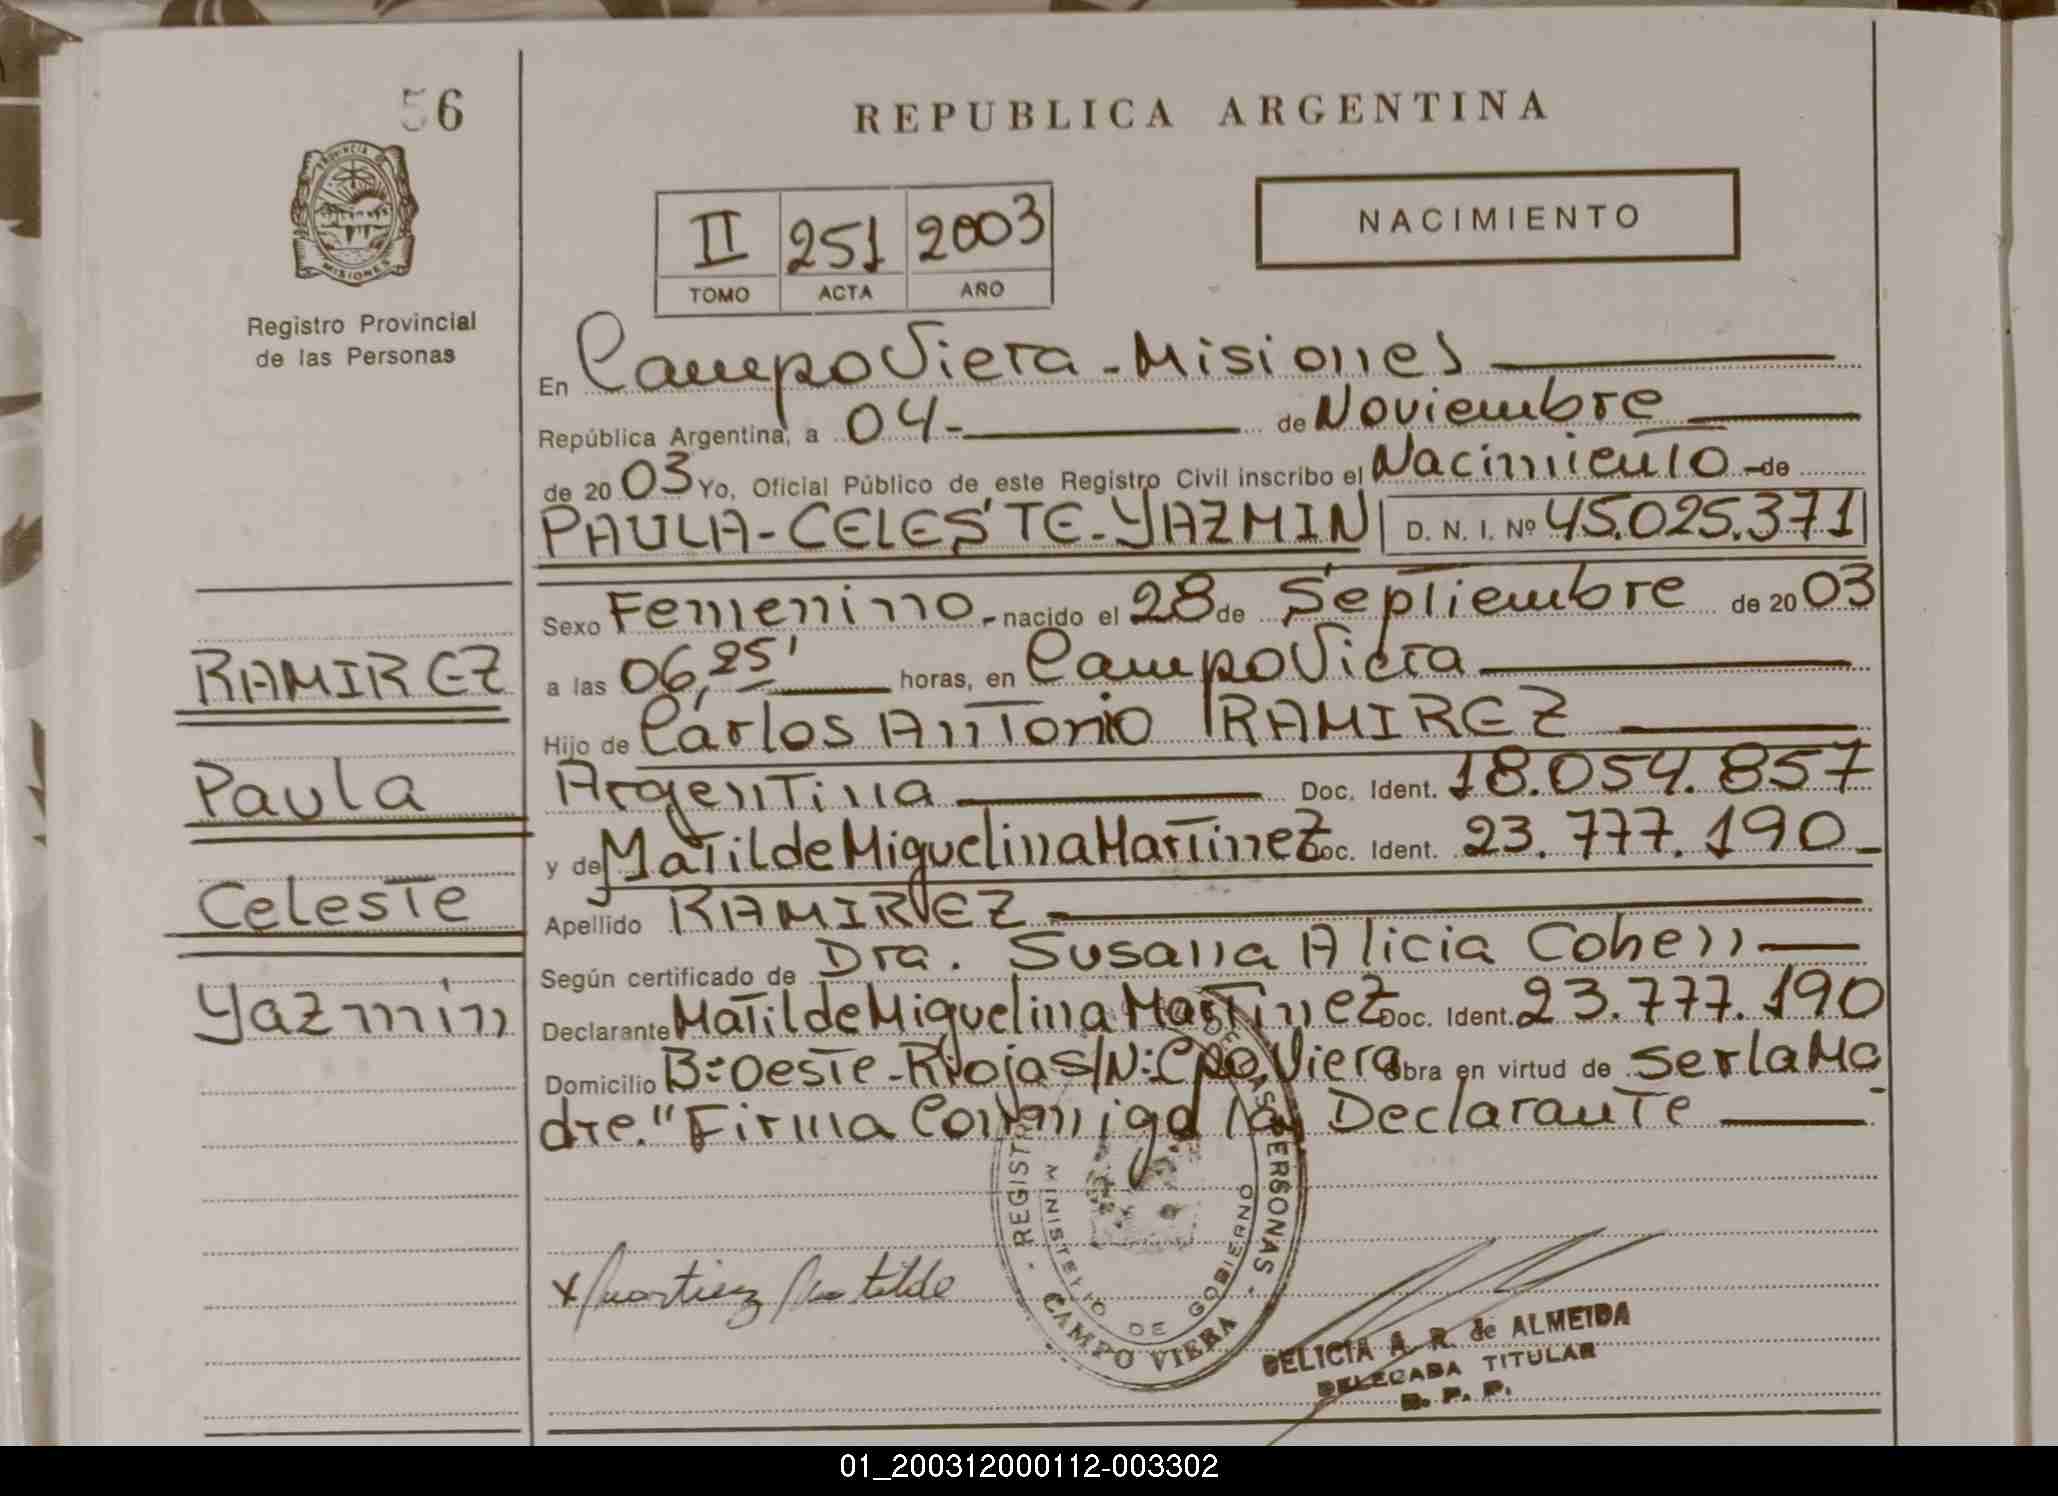 56
PROVINCIA DE
MISIONES
Registro Provincial
de las Personas
RAMIREZ
Paula
Celeste
Yazmin
REPUBLICA ARGENTINA
II 251 2003
TOMO ACTA AÑO
NACIMIENTO
En Campo Viera - Misiones
República Argentina, a 04- de Noviembre
de 2003 Yo, Oficial Público de este Registro Civil inscribo el Nacimiento - de
PAULA-CELESTE-YAZMIN D. N. I. Nº 45.025.371
Sexo Femenino - nacido el 28 de Septiembre de 2003
a las 06,25' horas, en Campo Viera
Hijo de Carlos Antonio RAMIREZ
Argentina Doc. Ident. 18.054.857
y de Matilde Miguelina Martinez Doc. Ident. 23.777.190-
Apellido RAMIREZ
Según certificado de Dra. Susana Alicia Cohen
Declarante Matilde Miguelina Martinez Doc. Ident. 23.777.190
Domicilio B:Oeste-Rioja S/N: Cpo. Viera obra en virtud de ser la Ma
dre." Firma Conmigo la Declarante
REGISTRO DE LAS PERSONAS
MINISTERIO DE GOBIERNO
CAMPO VIERA
x Martinez Matilde
DELICIA A. R. de ALMEIDA
DELEGADA TITULAR
R. P. P.
01_200312000112-003302